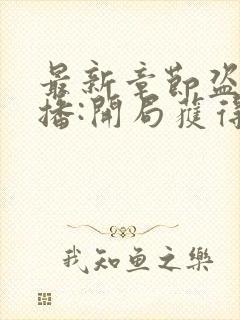 最新章節盗
播:開局獲得
我知魚之樂